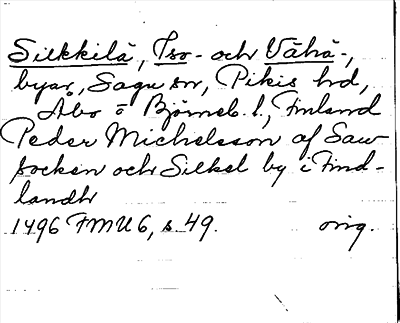 Silkkilä, Iso- och Vähä-,
byar, Sagu sn, Pikis hd,
Åbo o Björneb. l., Finland
Peder Michelsson af Saw
socken och Silkel by i Find-
landh
1496 FMU 6, s. 49. orig.